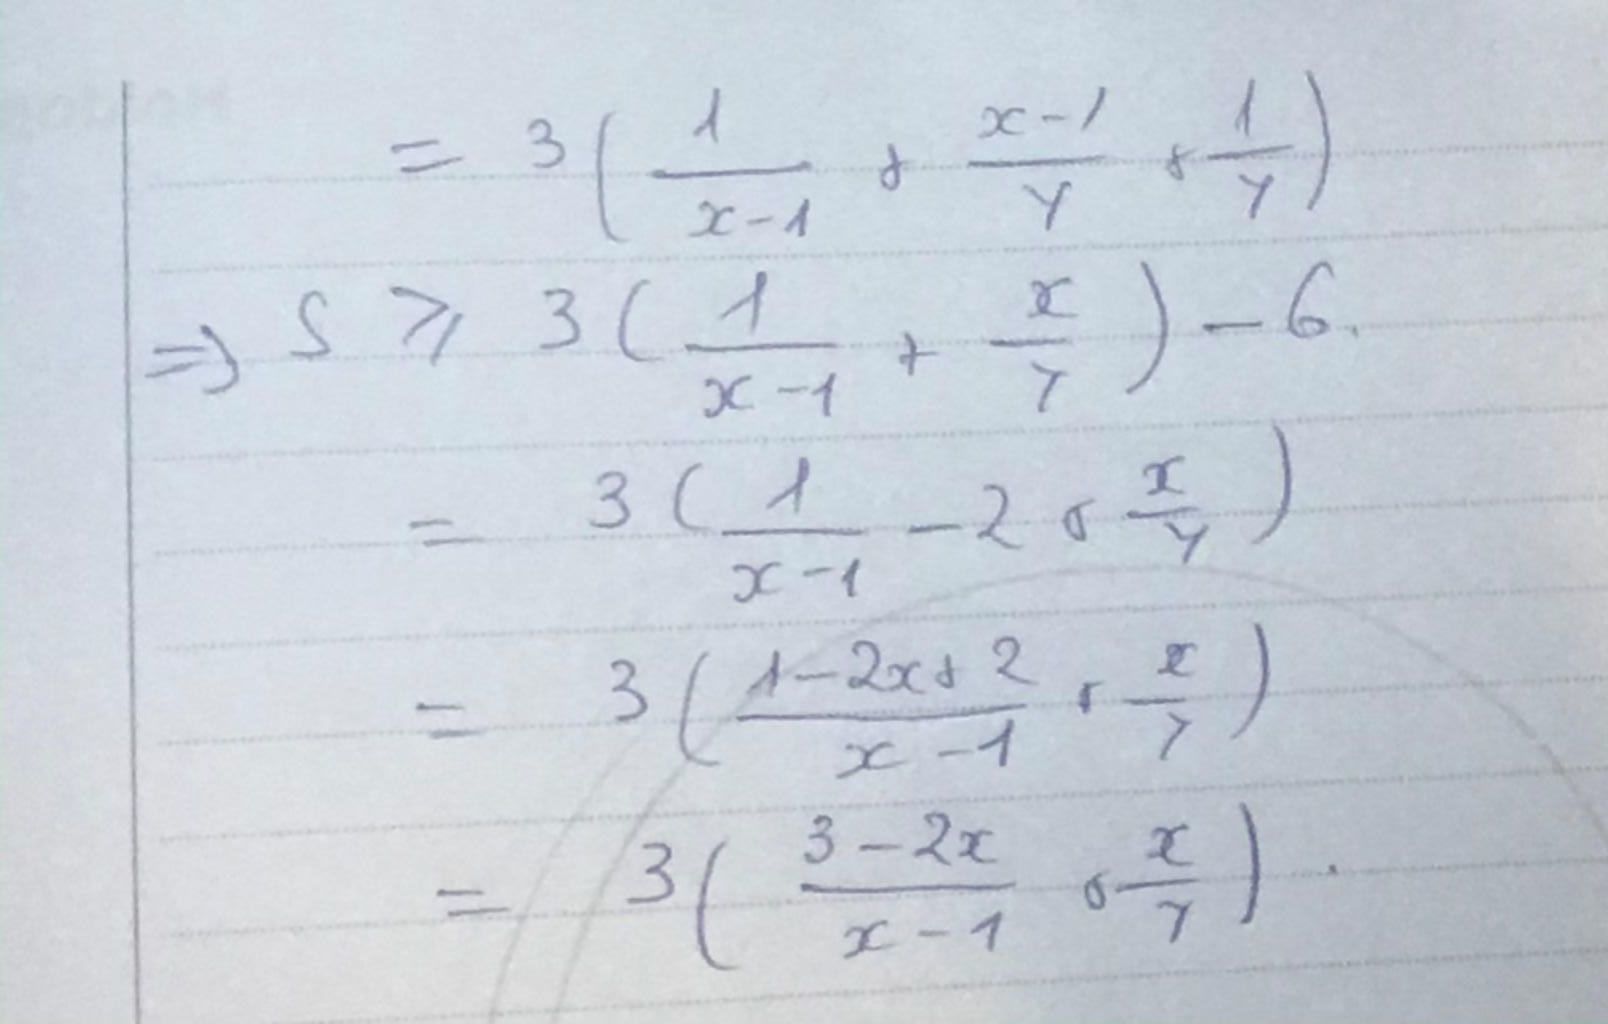 = 3(1/(x-1) + (x-1)/y + 1/y)
=> S ⩾ 3(1/(x-1) + x/y) - 6.
= 3(1/(x-1) - 2 + x/y)
= 3((1-2x+2)/(x-1) + x/y)
= 3((3-2x)/(x-1) + x/y).